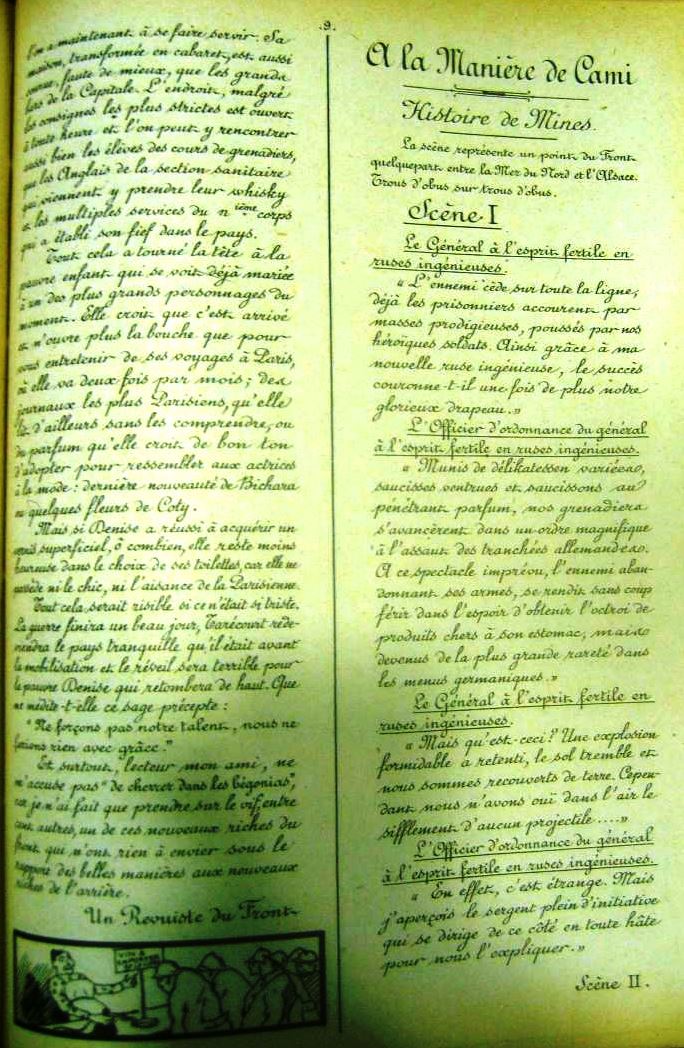 .9.
l'on a maintenant à se faire servir. Sa
maison, transformée en cabaret, est aussi
courue, faute de mieux, que les grands
bars de la Capitale. L'endroit, malgré
les consignes les plus strictes est ouvert
à toute heure et l'on peut y rencontrer
aussi bien les élèves des cours de grenadiers,
que les Anglais de la section sanitaire
qui viennent y prendre leur whisky
et les multiples services du n ième corps
qui a établi son fief dans le pays.
Tout cela a tourné la tête à la
pauvre enfant qui se voit déjà mariée
à un des plus grands personnages du
moment. Elle croit que c'est arrivé
et n'ouvre plus la bouche que pour
vous entretenir de ses voyages à Paris,
où elle va deux fois par mois ; des
journaux les plus Parisiens, qu'elle
lit d'ailleurs sans les comprendre, ou
du parfum qu'elle croit de bon ton
d'adopter pour ressembler aux actrices
à la mode : dernière nouveauté de Bichara
ou quelques fleurs de Coty.
Mais si Denise a réussi à acquérir un
vernis superficiel, ô combien, elle reste moins
heureuse dans le choix de ses toilettes, car elle ne
possède ni le chic, ni l'aisance de la Parisienne.
Tout cela serait risible si ce n'était si triste.
La guerre finira un beau jour, rede-
viendra le pays tranquille qu'il était avant
la mobilisation et le réveil sera terrible pour
la pauvre Denise qui retombera de haut. Que
ne médite-t-elle ce sage précepte :
"Ne forçons pas notre talent, nous ne
ferions rien avec grâce."
Et surtout, lecteur mon ami, ne
m'accuse pas "de cherrer dans les bégonias",
car je n'ai fait que prendre sur le vif, entre
cent autres, un de ces nouveaux riches du
front qui n'ont rien à envier sous le
rapport des belles manières aux nouveaux
riches de l'arrière.
Un Revuiste du Front
A la Manière de Cami
Histoire de Mines.
La scène représente un point du Front
quelquepart entre la Mer du Nord et l'Alsace.
Trous d'obus sur trous d'obus.
Scène I
Le Général à l'esprit fertile en
ruses ingénieuses.
« L'ennemi cède sur toute la ligne ;
déjà les prisonniers accourent par
masses prodigieuses, poussés par nos
héroïques soldats. Ainsi grâce à ma
nouvelle ruse ingénieuse, le succès
couronne-t-il une fois de plus notre
glorieux drapeau. »
L'Officier d'ordonnance du général
à l'esprit fertile en ruses ingénieuses.
« Munis de délikatessen variées,
saucisses ventrues et saucissons au
pénétrant parfum, nos grenadiers
s'avancèrent dans un ordre magnifique
à l'assaut des tranchées allemandes.
A ce spectacle imprévu, l'ennemi aban-
donnant ses armes, se rendit sans coup
férir dans l'espoir d'obtenir l'octroi de
produits chers à son estomac, mais
devenus de la plus grande rareté dans
les menus germaniques. »
Le Général à l'esprit fertile en
ruses ingénieuses.
« Mais qu'est-ceci ? Une explosion
formidable a retenti, le sol tremble et
nous sommes recouverts de terre. Cepen-
dant nous n'avons ouï dans l'air le
sifflement d'aucun projectile .... »
L'Officier d'ordonnance du général
à l'esprit fertile en ruses ingénieuses.
« En effet, c'est étrange. Mais
j'aperçois le sergent plein d'initiative
qui se dirige de ce côté en toute hâte
pour nous l'expliquer. »
Scène II.